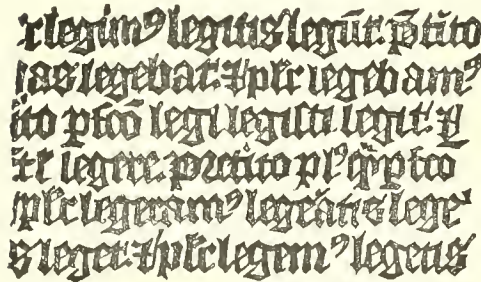 r legimꝰ legitis legūt. p̄ t̄ito
as legebat. ⁊ pl̄r legebamꝰ
ito ꝑfcō legi legisti legit. ⁊
legere. p̄rt̄ito plꝰ q̄ꝑfc̄o
pl̄r legeramꝰ legeātis ⁊ lege
s leget. ⁊ pl̄r legemꝰ legetis